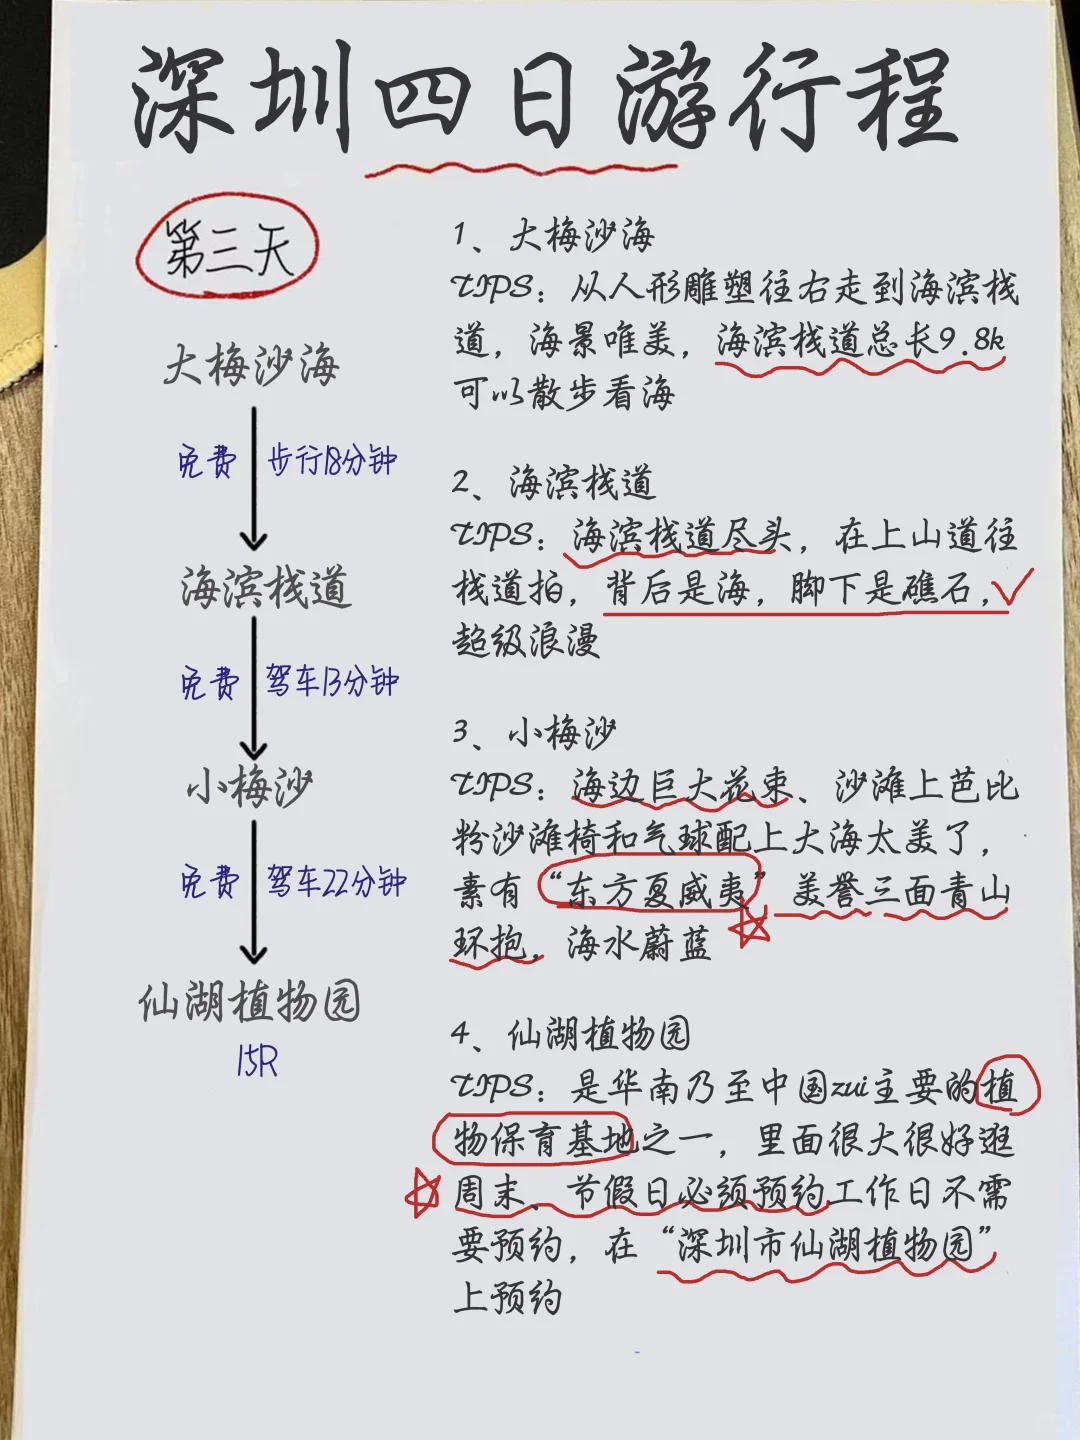 深圳四日游行程
第三天
大梅沙海
免费 步行18分钟
海滨栈道
免费 驾车13分钟
小梅沙
免费 驾车22分钟
仙湖植物园
15R
1、大梅沙海
TIPS：从人形雕塑往右走到海滨栈
道，海景唯美，海滨栈道总长9.8k
可以散步看海
2、海滨栈道
TIPS：海滨栈道尽头，在上山道往
栈道拍，背后是海，脚下是礁石，
超级浪漫
3、小梅沙
TIPS：海边巨大花束、沙滩上芭比
粉沙滩椅和气球配上大海太美了，
素有“东方夏威夷”美誉三面青山
环抱，海水蔚蓝
4、仙湖植物园
TIPS：是华南乃至中国zui主要的植
物保育基地之一，里面很大很好逛
周末、节假日必须预约工作日不需
要预约，在“深圳市仙湖植物园”
上预约